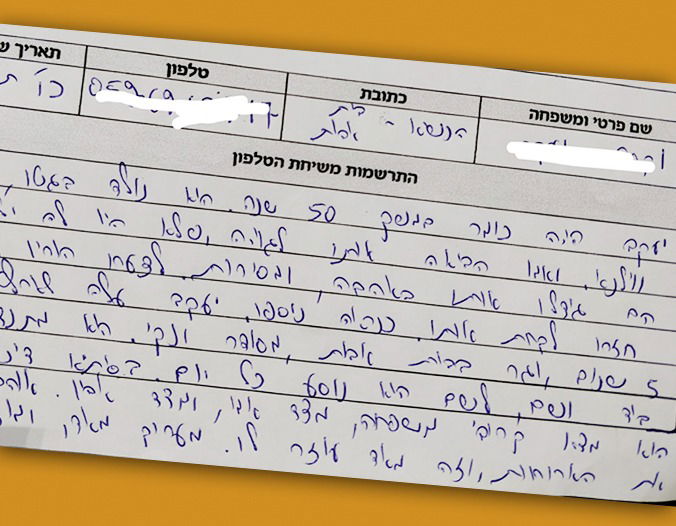 שם פרטי ומשפחה כתובת טלפון תאריך
הנשיא - בית כו'
אבות
התרשמות משיחת הטלפון
יעקב היה כומר במשך 50 שנה. הוא נולד בגטו
וילנאי. ואמו הביאה אותו לגויה, שלא היו לה
הם גידלו אותו באהבה, ומסירות. לצערו הוריו
חזרו לקחת אותו. כנראה ניספו. יעקב עלה
5 שנים, וגר בבית אבות, מסודר ונקי. הוא
ביד ושם, לשם הוא נוסע כל יום.
הוא מצא קרובי משפחה, מצד אמו, ומצד אביו.
את הארוחות, וזה מאד עוזר לו. מעריך מאד,